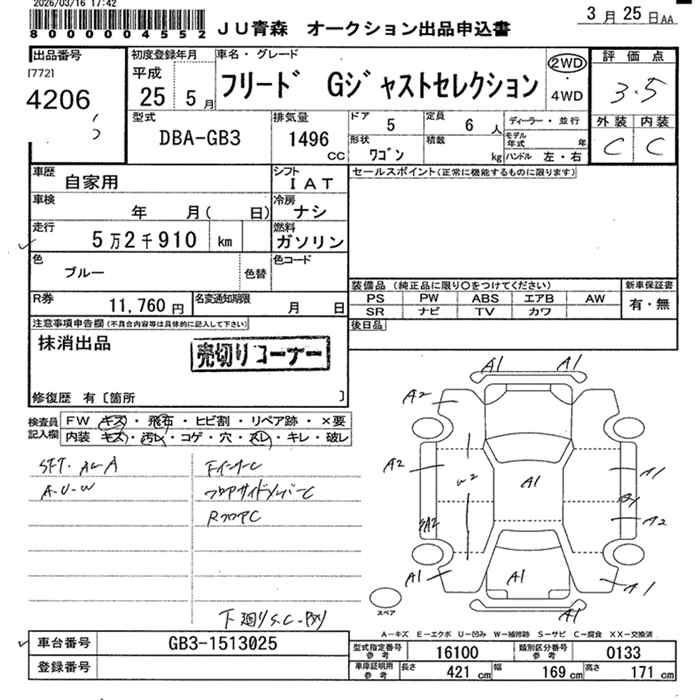 2026/03/16 17:42
8 0 0 0 0 0 4 5 5 2
JU青森 オークション出品申込書
3月25日AA
出品番号
[772]
4206
初度登録年月
平成
25 5月
車名・グレード
フリード Gジャストセレクション
2WD
4WD
評価点
3.5
外装 内装
C C
型式
DBA-GB3
排気量
1496 CC
ドア 5
定員 6 人
形状 ワゴン
積載 kg
ディーラー・並行
モデル年式 年
ハンドル 左・右
車歴 自家用
シフト IAT
セールスポイント(正常に機能するものに限ります)
車検 年 月( 日)
冷房 ナシ
走行 5万2千910 km
燃料 ガソリン
色 ブルー
色替
色コード
装備品(純正品に限り○をつけてください)
PS PW ABS エアB AW
SR ナビ TV カワ
新車保証書
有・無
R券 11,760円
名変通知期限 月 日
後日品
注意事項申告欄(不具合内容等は具体的に記入して下さい)
抹消出品
売切りコーナー
修復歴 有[箇所 ]
検査員記入欄
FW キズ・飛石・ヒビ割・リペア跡・×要
内装 キズ・汚レ・コゲ・穴・スレ・キレ・破レ
A-U-W
FインナーC
フロアサイドメンバーC
RフロアC
下廻りS.C
A1 A1
A2
A2 W2 A1 A1
A2
A1 A1 A1
スペア
A-キズ E-エクボ U-凹み W-補修跡 S-サビ C-腐食 XX-交換済
車台番号 GB3-1513025
登録番号
型式指定番号 参考 16100
類別区分番号 参考 0133
車庫証明用 参考 長さ 421 cm 幅 169 cm 高さ 171 cm